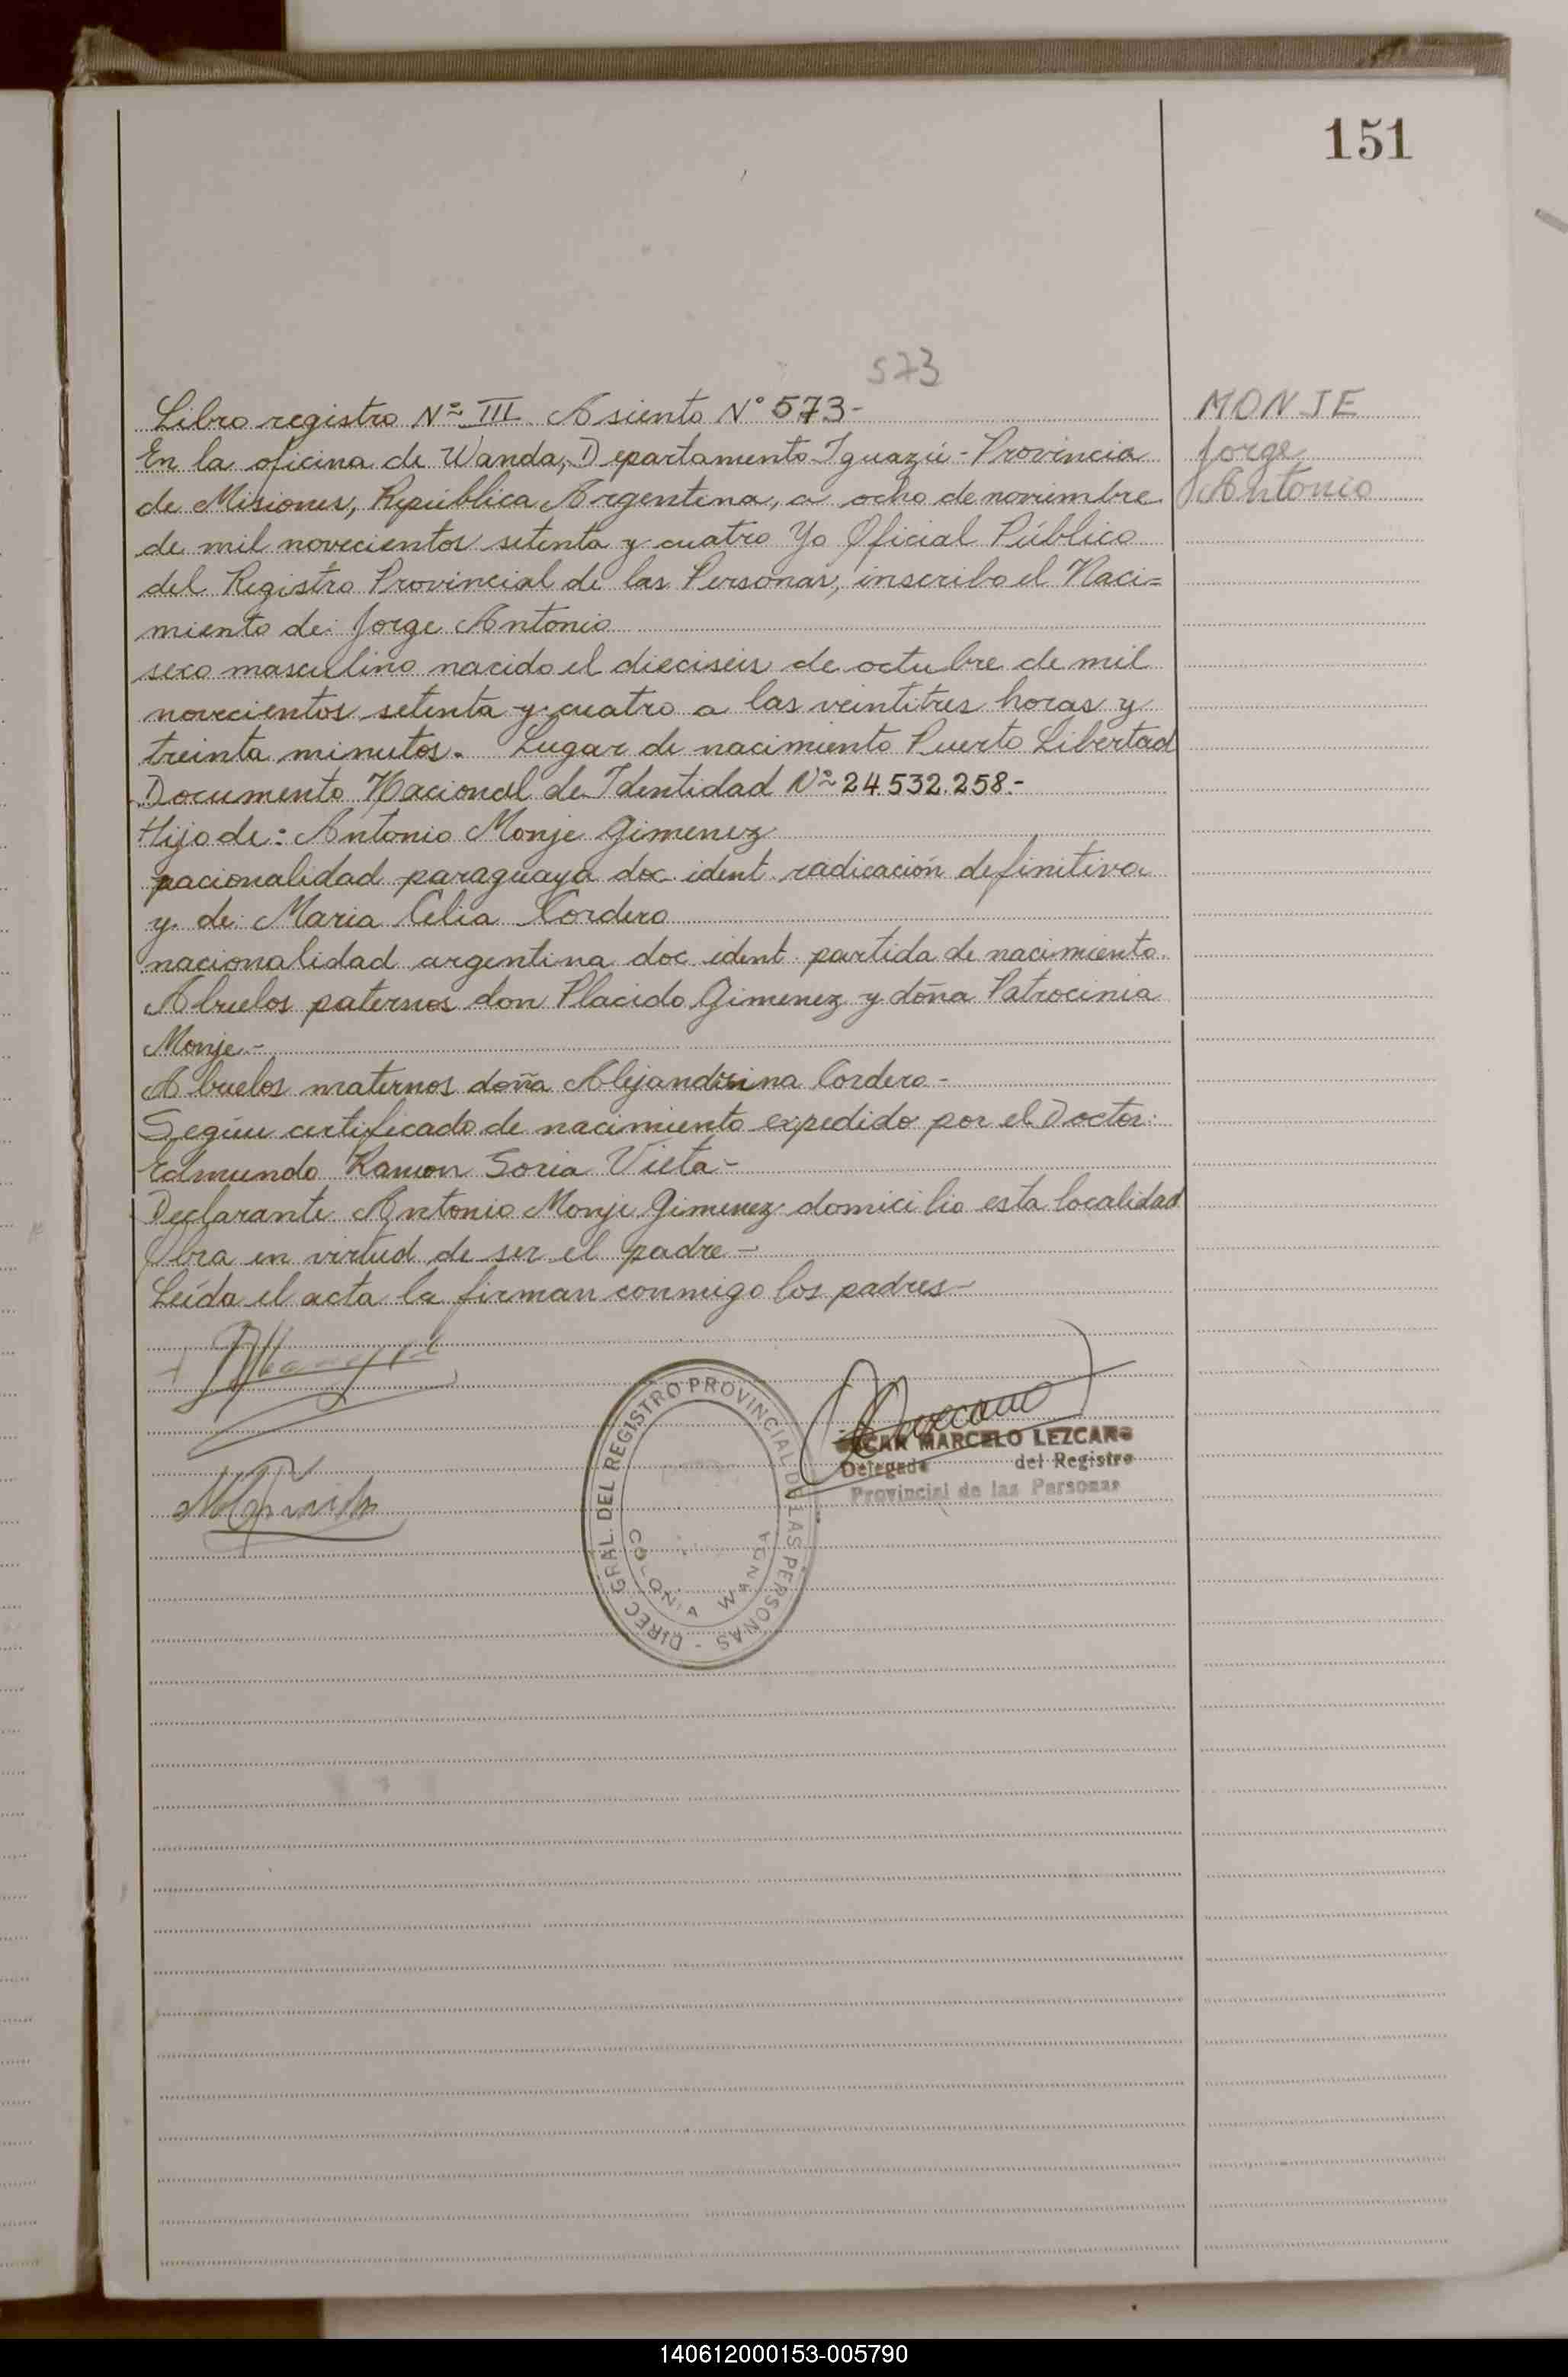 151
573
Libro registro Nº III Asiento Nº 573-
MONJE
En la oficina de Wanda, Departamento Iguazú - Provincia
Jorge
de Misiones, República Argentina, a ocho de noviembre
Antonio
de mil novecientos setenta y cuatro Yo Oficial Público
del Registro Provincial de las Personas, inscribo el Naci=
miento de: Jorge Antonio
sexo masculino nacido el dieciseis de octubre de mil
novecientos setenta y cuatro a las veintitres horas y
treinta minutos. Lugar de nacimiento Puerto Libertad
Documento Nacional de Identidad Nº 24.532.258.-
Hijo de: Antonio Monje Gimenez
nacionalidad paraguaya doc. ident. radicación definitiva
y de: Maria Celia Cordero
nacionalidad argentina doc ident. partida de nacimiento.
Abuelos paternos don Placido Gimenez y doña Patrocinia
Monje.-
Abuelos maternos doña Alejandrina Cordero-
Según certificado de nacimiento expedido por el Doctor:
Edmundo Ramon Soria Vieta-
Declarante Antonio Monje Gimenez domicilio esta localidad
Obra en virtud de ser el padre-
Leída el acta la firman conmigo los padres-
DIREC. GRAL. DEL REGISTRO PROVINCIAL DE LAS PERSONAS -
COLONIA WANDA
OSCAR MARCELO LEZCANO
Delegado del Registro
Provincial de las Personas
140612000153-005790